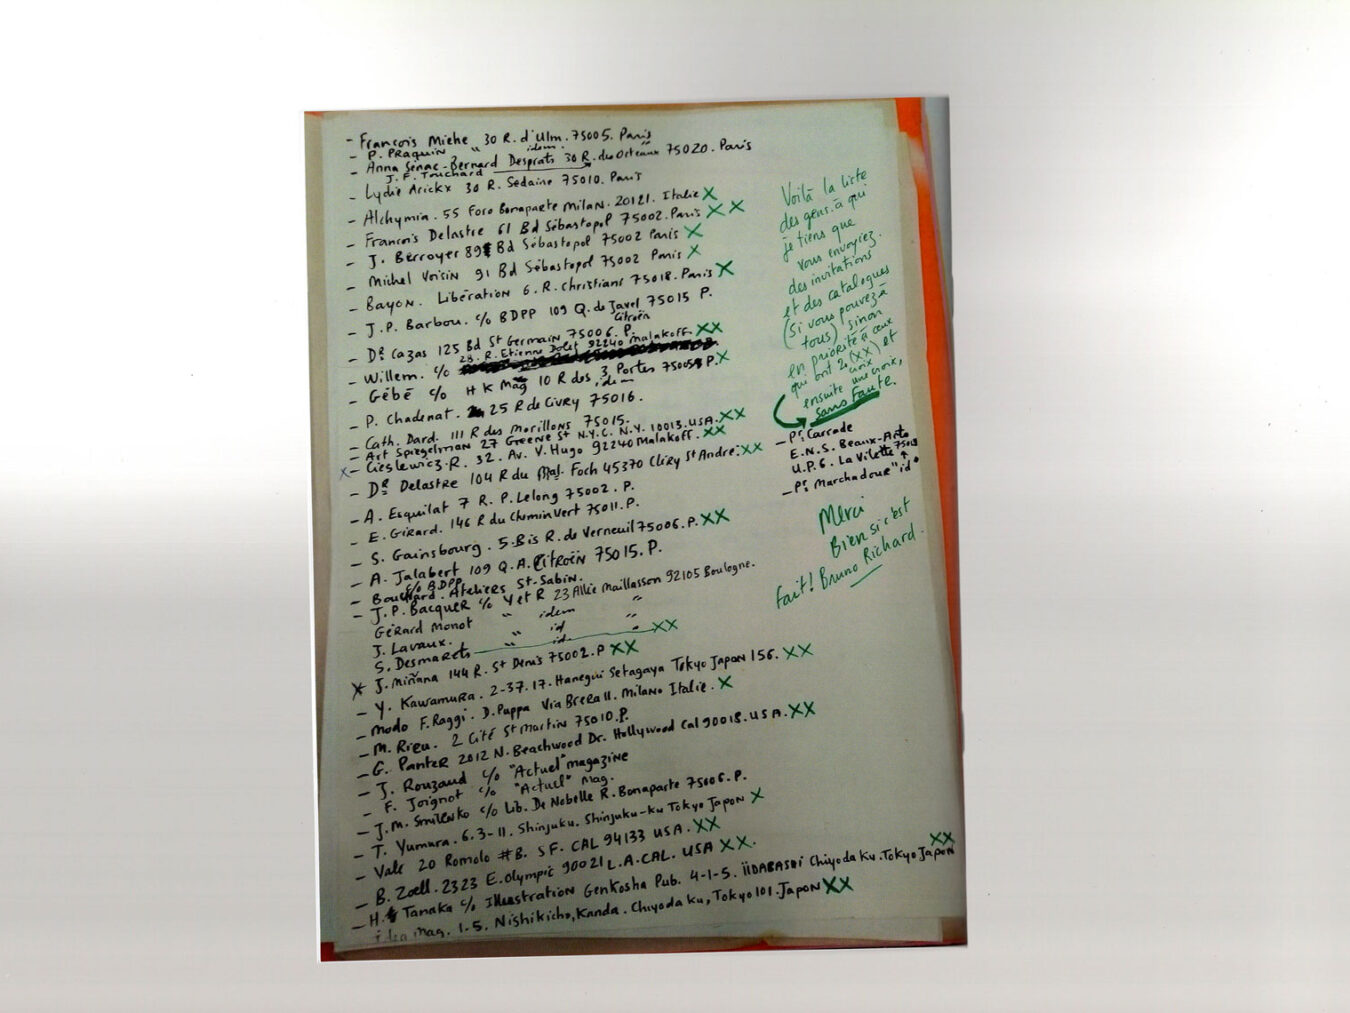 - François Miehe 30 R. d'Ulm. 75005. Paris
- P. Praquin " idem. "
- Anna Sénac-Bernard Desprats 30 R. des Orteaux 75020. Paris
J. F. Touchard
- Lydie Arickx 30 R. Sedaine 75010. Paris
- Alchymia. 55 Foro Bonaparte Milan. 20121. Italie X
- Francois Delastre 61 Bd Sébastopol 75002. Paris X X
- J. Berroyer 89 Bd Sébastopol 75002 Paris X
- Michel Voisin 91 Bd Sébastopol 75002 Paris X
- Bayon. Libération 6. R. Christiani 75018. Paris X
- J.P. Barbou. c/o BDPP 109 Q. de Javel 75015 P.
Citroën
- Dr. Cazas 125 Bd St Germain 75006. P.
- Willem. c/o 28. R. Etienne Dolet 92240 Malakoff. XX
- Gébé c/o H K Mag 10 R des 3 Portes 75005 P. X
- P. Chadenat. 25 R de Civry 75016.
- Cath. Dard. 111 R des Morillons 75015.
- Art Spiegelman 27 Greene St N.Y.C. N.Y. 10013. USA. XX
X - Cieslewicz. R. 32. Av. V. Hugo 92240 Malakoff. XX
- Dr. Delastre 104 R du Mal. Foch 45370 Cléry St André: XX
- A. Esquilat 7 R. P. Lelong 75002. P.
- E. Girard. 146 R du Chemin Vert 75011. P.
- S. Gainsbourg. 5 Bis R. de Verneuil 75006. P. XX
- A. Jalabert 109 Q. A. Citroën 75015. P.
c/o BDPP
- Bouchard. Ateliers St-Sabin.
- J. P. Bacquer c/o Y et R 23 Allée Maillasson 92105 Boulogne.
Gérard Monot " idem "
J. Lavaux. " id "
S. Desmarets " id XX
X J. Miñana 144 R. St Denis 75002. P XX
- Y. Kawamura. 2-37.17. Hanegui Setagaya Tokyo Japon 156. XX
- Modo F. Raggi. D. Puppa Via Brera 11. Milano Italie. X
- M. Rieu. 2 Cité St Martin 75010. P.
- G. Panter 2012 N. Beachwood Dr. Hollywood Cal 90018. USA. XX
- J. Rouzaud c/o "Actuel" magazine
- F. Joignot c/o "Actuel" Mag.
- J. M. Smilenko c/o Lib. De Nobelle R. Bonaparte 75006. P.
- T. Yumura. 6.3-11. Shinjuku. Shinjuku-ku Tokyo Japon X
- Vale 20 Romolo #B. SF. CAL 94133 USA. XX
- B. Zoell. 2323 E. Olympic 90021 L.A. CAL. USA XX.
- H. Tanaka c/o Illustration Genkosha Pub. 4-1-5. IIDABASHI Chiyoda ku. Tokyo Japon XX
- Idea Mag. 1-5. Nishikicho, Kanda. Chiyoda ku, Tokyo 101. Japon XX
Voilà la liste
des gens à qui
je tiens que
vous envoyiez.
des invitations
et des catalogues
(si vous pouvez à
tous) sinon
en priorité à ceux
qui ont 2 (XX) croix et
ensuite une croix,
sans faute.
- Pr. Carrade
E.N.S. Beaux-Arts
U.P.6. La Villette 75019
- Pr. Marchadour "id"
Merci
Bien si c'est
fait! Bruno Richard.